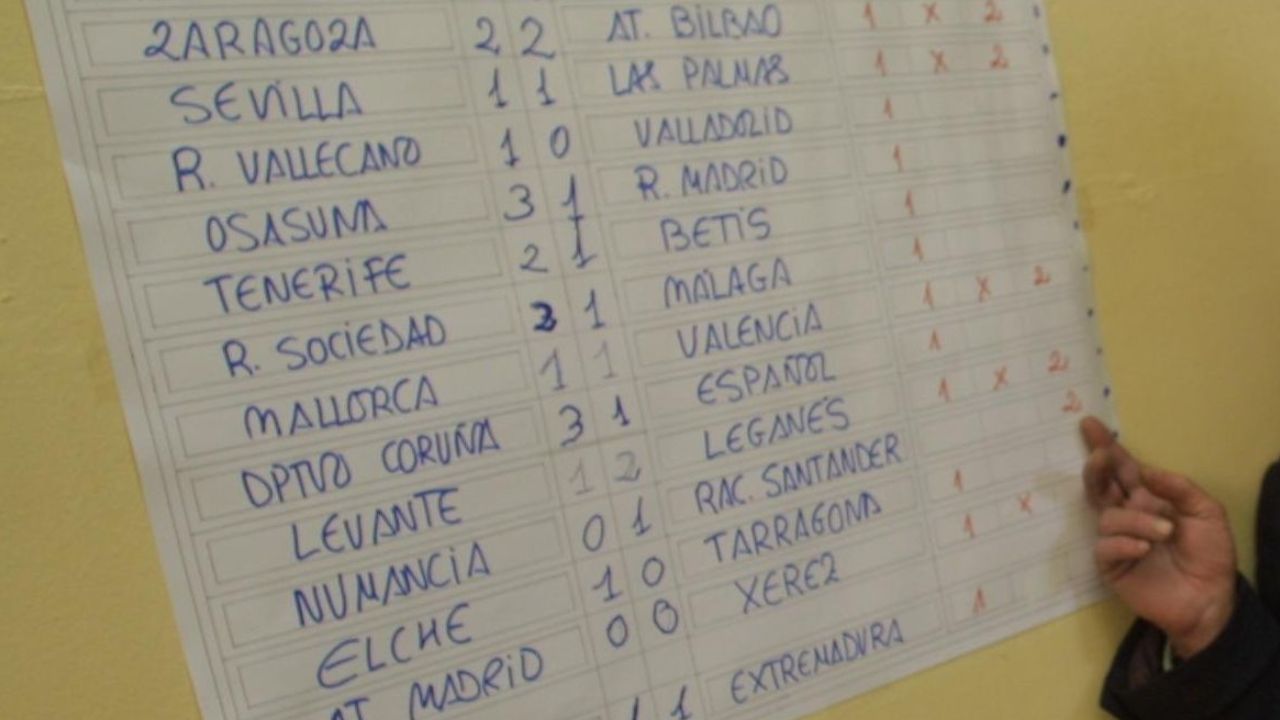 ZARAGOZA 2 2 AT. BILBAO 1 X 2
SEVILLA 1 1 LAS PALMAS 1 X 2
R. VALLECANO 1 0 VALLADOLID 1
OSASUNA 3 1 R. MADRID 1
TENERIFE 2 1 BETIS 1
R. SOCIEDAD 1 MÁLAGA 1
MALLORCA 1 1 VALENCIA 1 X 2
DPTVO CORUÑA 3 1 ESPAÑOL 1
LEVANTE 1 2 LEGANÉS 1 X 2
NUMANCIA 0 1 RAC. SANTANDER 2
ELCHE 1 0 TARRAGONA 1
AT MADRID 0 0 XEREZ 1 X
1 EXTREMADURA 1